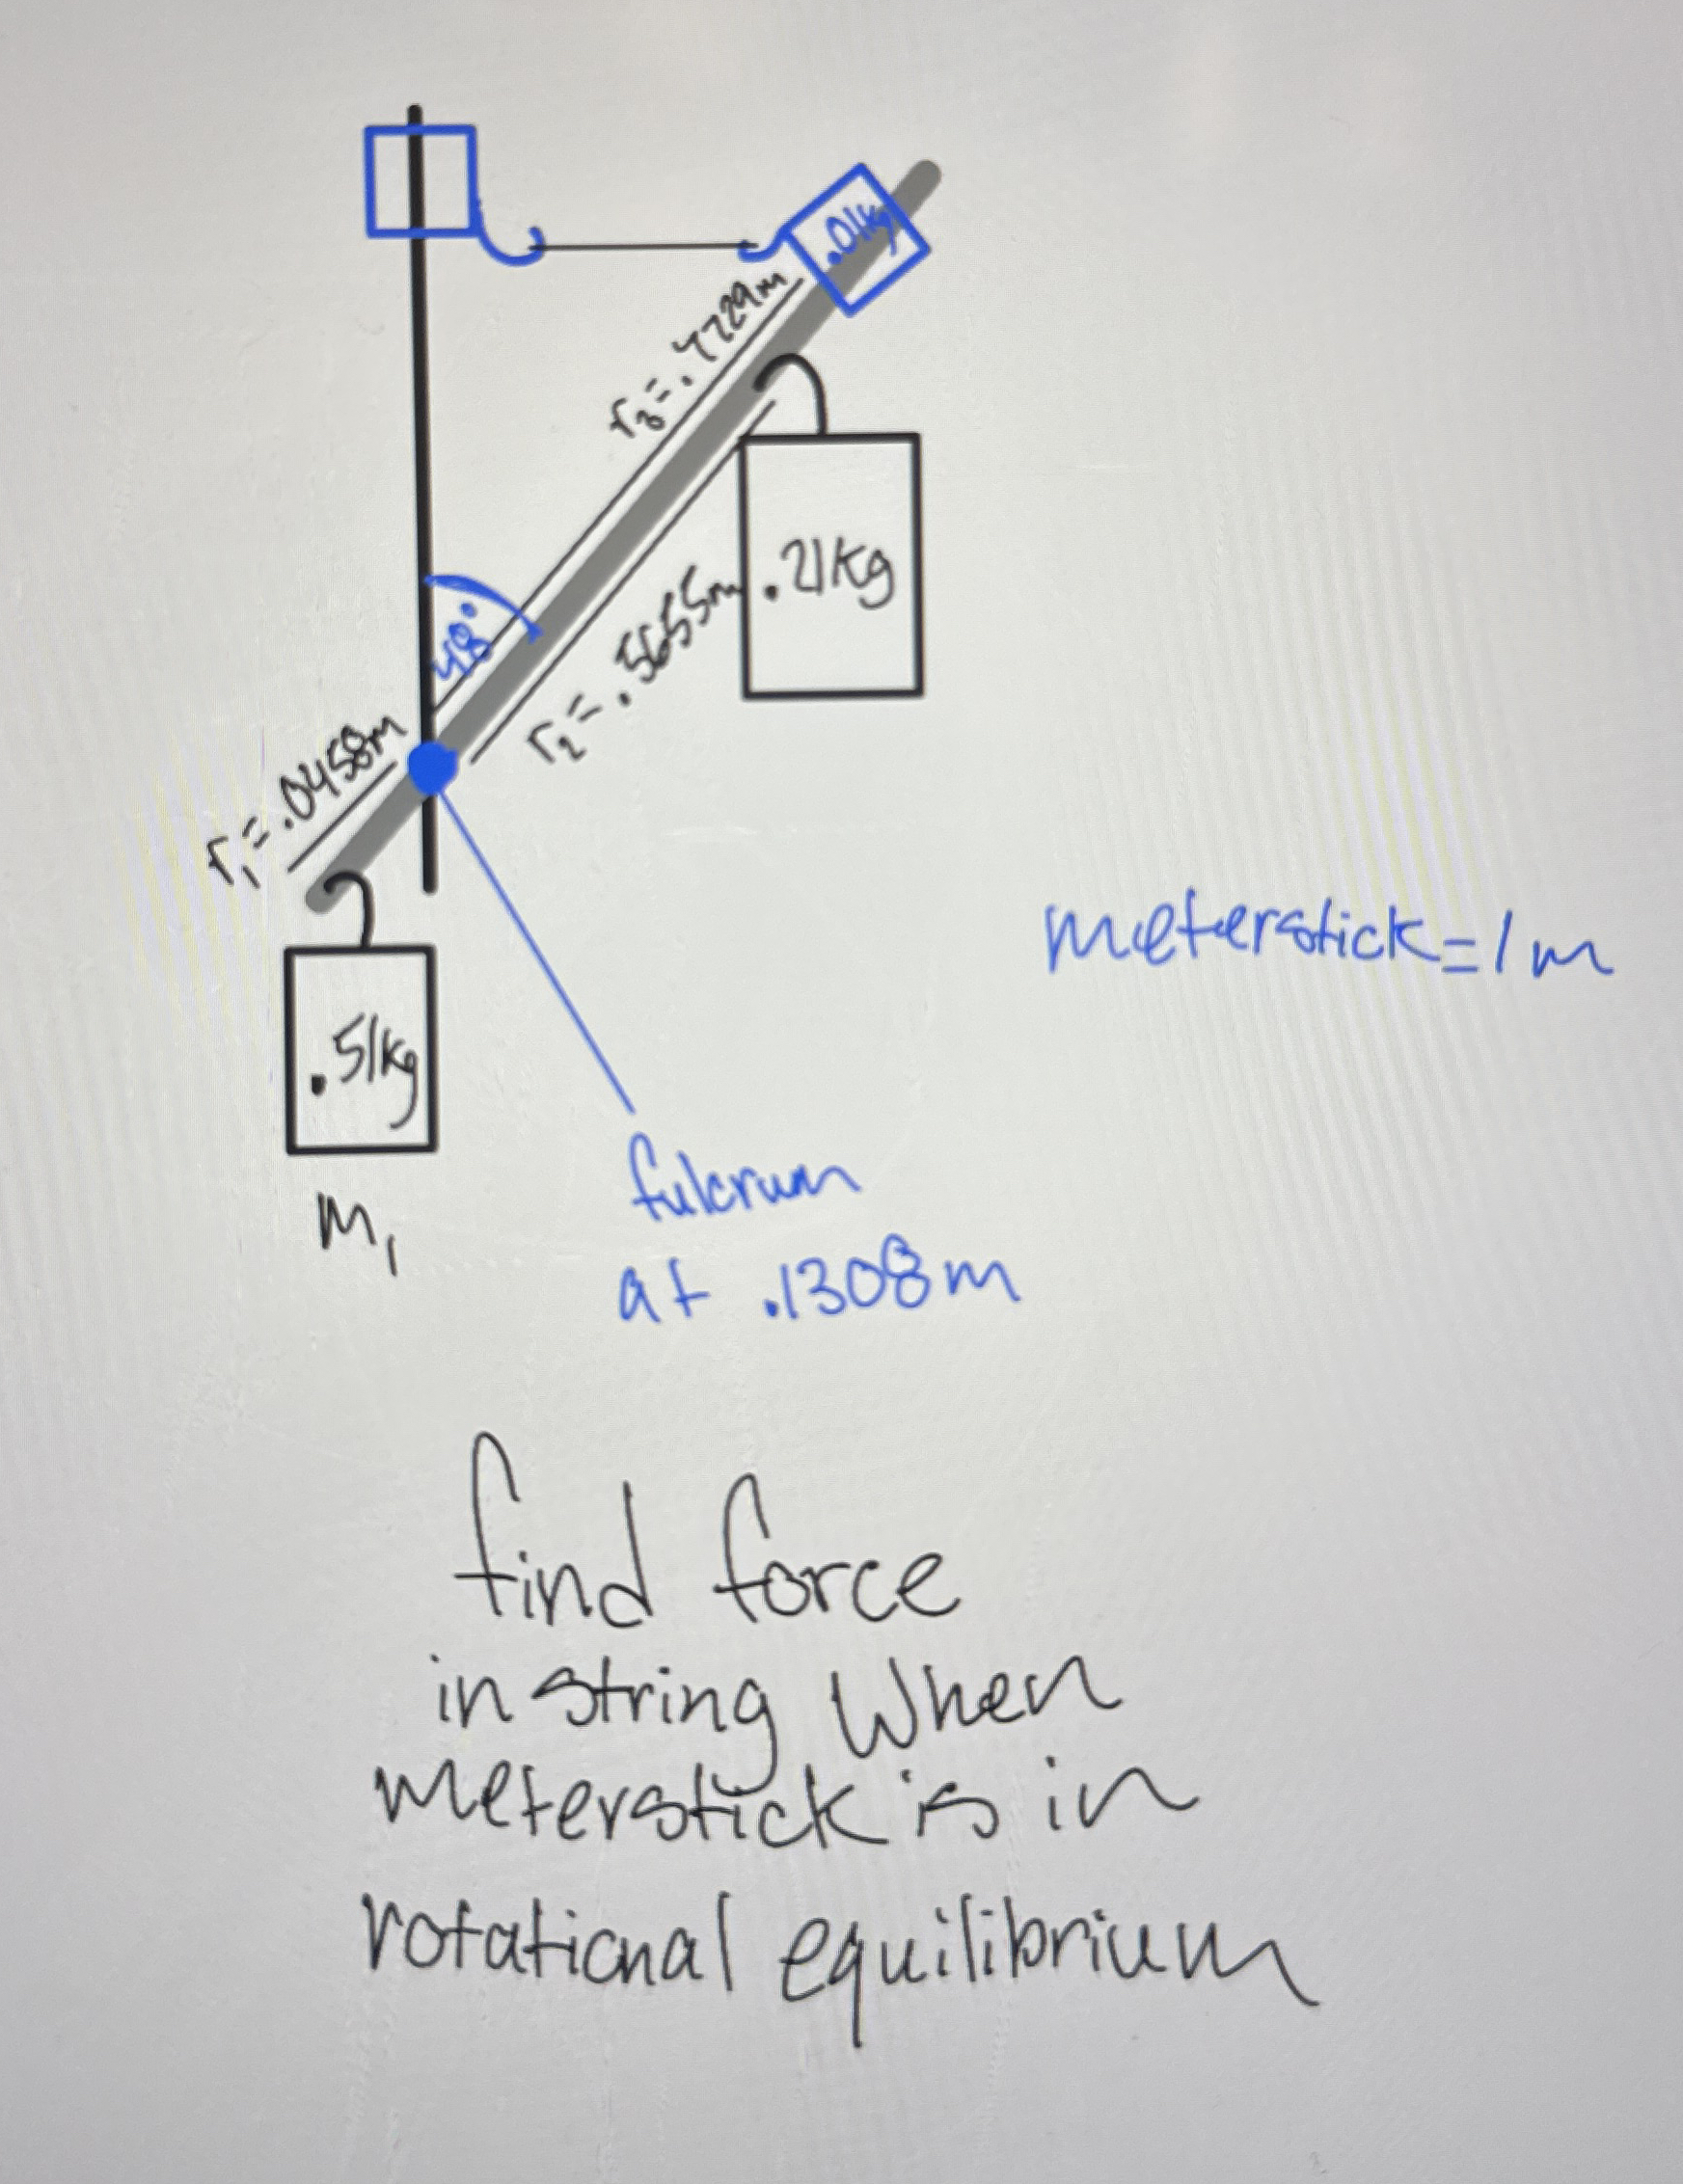 .01kg
r₃ = .7729m
.21kg
48°
r₂ = .5655m
r₁ = .0458m
meterstick = 1m
.51kg
m₁
fulcrum
at .1308m
find force
in string When
meterstick is in
rotational equilibrium